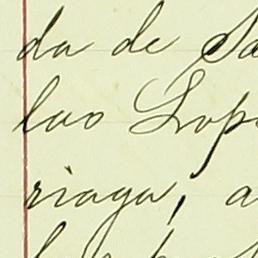 da de Sa
lao Lop
riaga, a